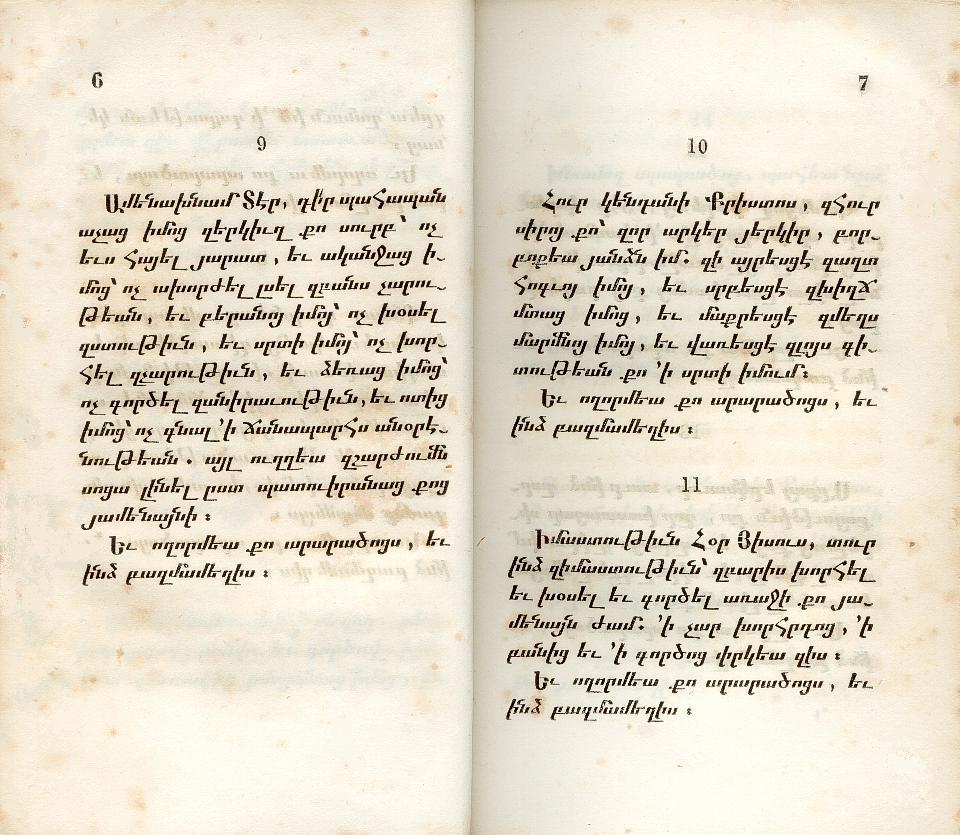 6
9
Ամենախնամ Տէր, դի՛ր պահապան
աչաց իմոց զերկիւղ քո սուրբ՝ ոչ
եւս հայել յարատ, եւ ականջաց ի-
մոց՝ ոչ ախորժել լսել զբանս չարու-
թեան, եւ բերանոյ իմոյ՝ ոչ խօսել
զստութիւն, եւ սրտի իմոյ՝ ոչ խոր-
հել զչարութիւն, եւ ձեռաց իմոց՝
ոչ գործել զանիրաւութիւն, եւ ոտից
իմոց՝ ոչ գնալ ՚ի ճանապարհս անօրէ-
նութեան. այլ ուղղեա զշարժումն
սոցա լինել ըստ պատուիրանաց քոց
յամենայնի։
Եւ ողորմեա քո արարածոցս, եւ
ինձ բազմամեղիս։
7
10
Հուր կենդանի Քրիստոս, զհուր
սիրոյ քո՝ զոր արկեր յերկիր, բոր-
բոքեա յանձն իմ. զի այրեսցէ զաղտ
հոգւոյ իմոյ, եւ սրբեսցէ զխիղճ
մտաց իմոց, եւ մաքրեսցէ զմեղս
մարմնոյ իմոյ, եւ վառեսցէ զլոյս գի-
տութեան քո ՚ի սրտի իմում։
Եւ ողորմեա քո արարածոցս, եւ
ինձ բազմամեղիս։
11
Իմաստութիւն Հօր Յիսուս, տուր
ինձ զիմաստութիւն՝ զբարիս խորհել
եւ խօսել եւ գործել առաջի քո յա-
մենայն ժամ. ՚ի չար խորհրդոց, ՚ի
բանից եւ ՚ի գործոց փրկեա զիս։
Եւ ողորմեա քո արարածոցս, եւ
ինձ բազմամեղիս։